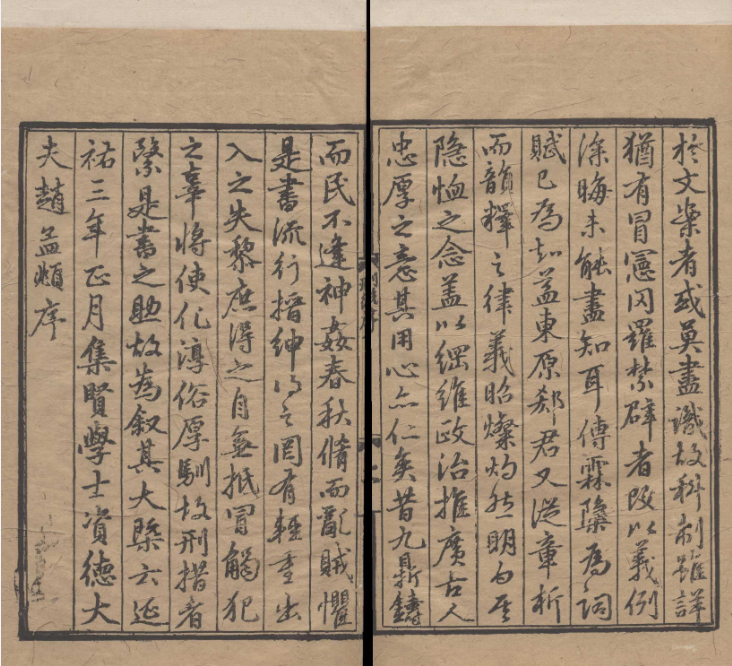 於文案者或莫盡識故科制雖詳
猶有冒憲罔羅禁辟者段以義例
深晦未能盡知耳傅霖櫽為詞
賦已為知益東原郄君又逐章析
而韻釋之律義昭燦灼然明白
隱恤之念蓋以綱維政治推廣古人
忠厚之意其用心亦仁矣昔九鼎鑄
而民不逢神姦春秋脩而亂賊懼
是書流行搢紳得之罔有輕重出
入之失黎庶得之自無抵冒觸犯
之辜將使化淳俗厚馴故刑措者
繄是書之助故為叙其大槩云延
祐三年正月集賢學士資德大
夫趙孟頫序